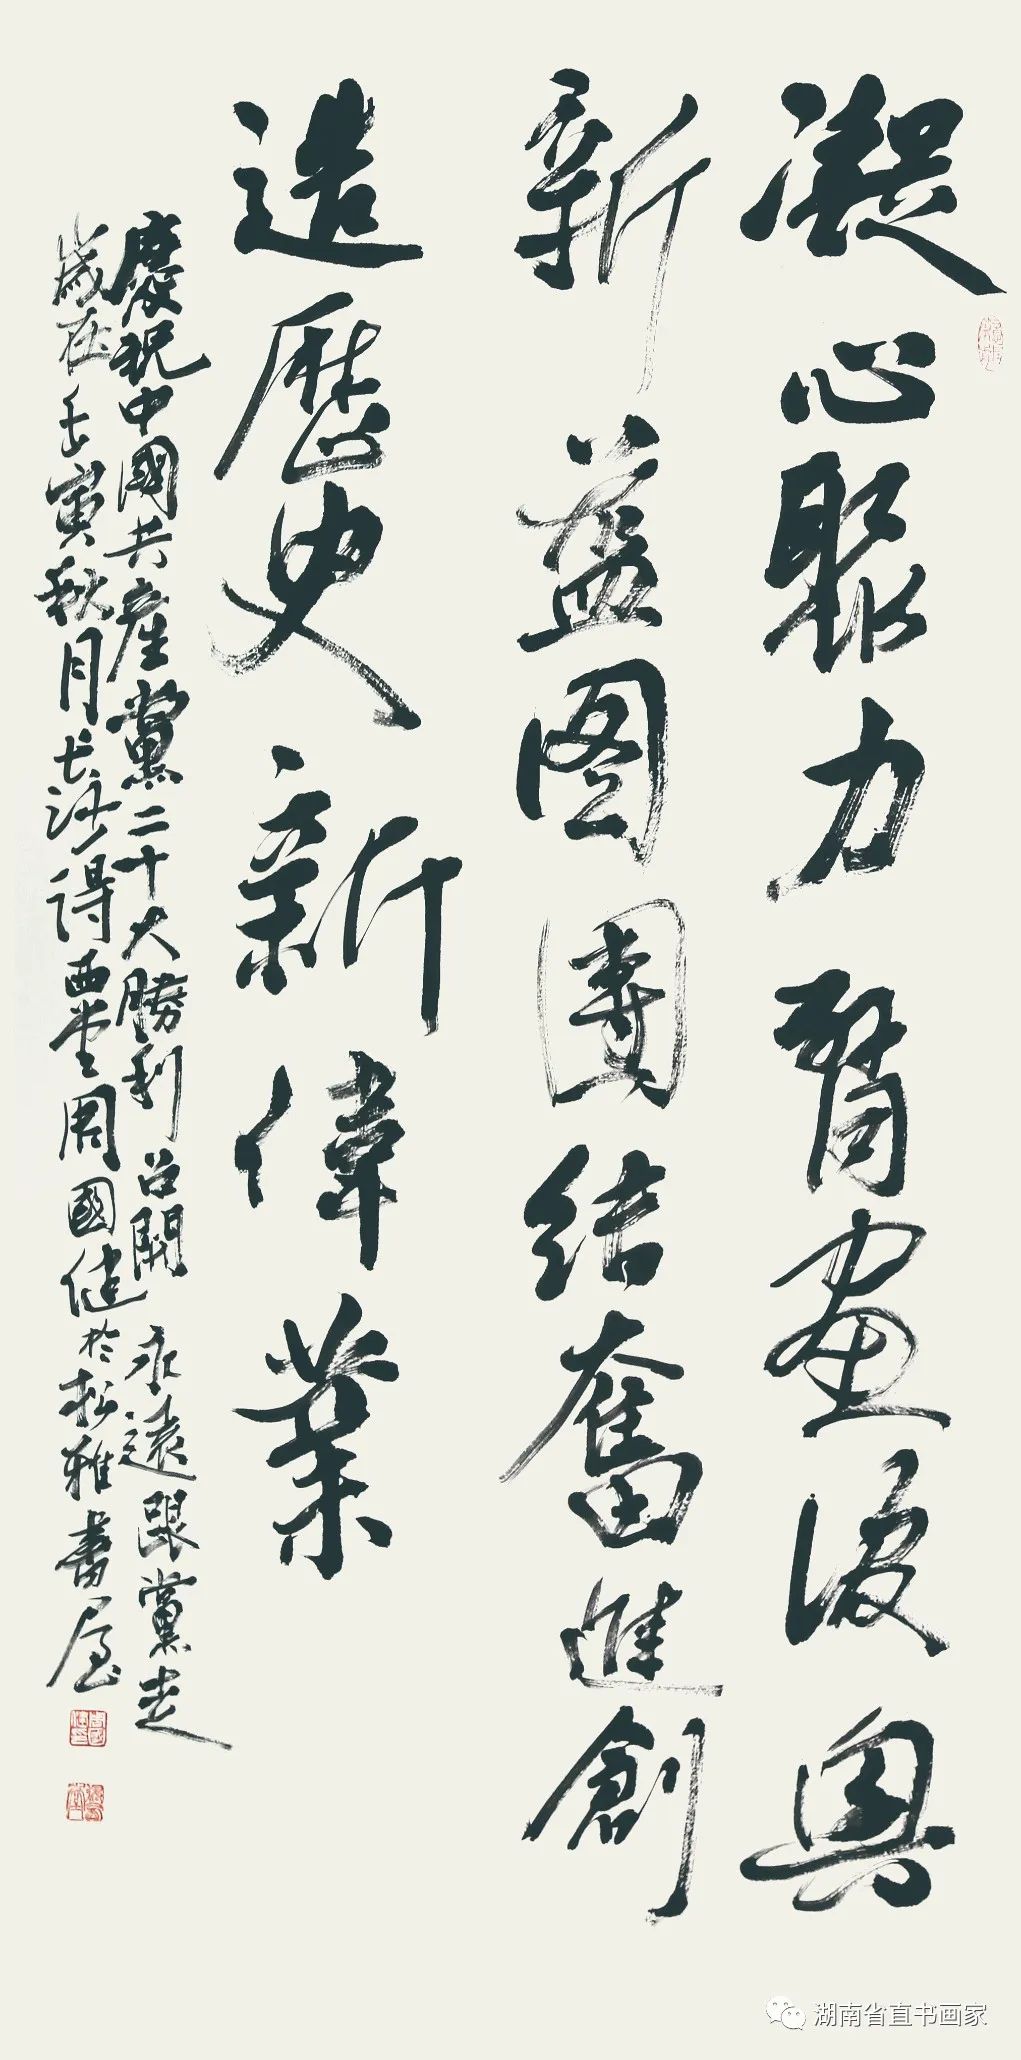 凝心聚力擘畫復興
新蓝图團結奮進創
造歷史新偉業
慶祝中國共産黨二十大勝利召開 永遠跟黨走
歲在壬寅秋月長沙得西堂周國健於松雅書屋
湖南省直书画家